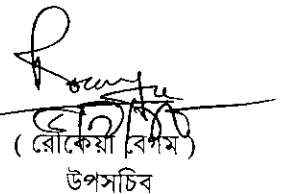 ( রোকেয়া বেগম )
উপসচিব